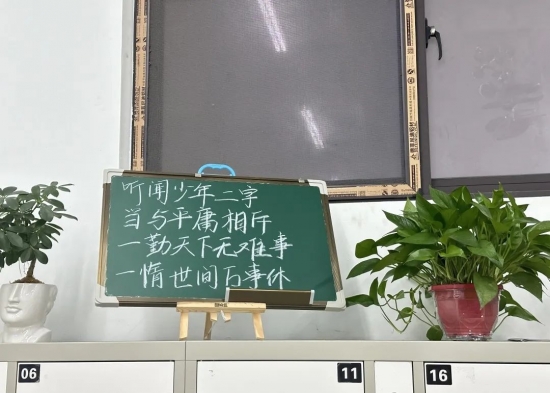 听闻少年二字
当与平庸相斥
一勤天下无难事
一惰世间万事休
06
11
16